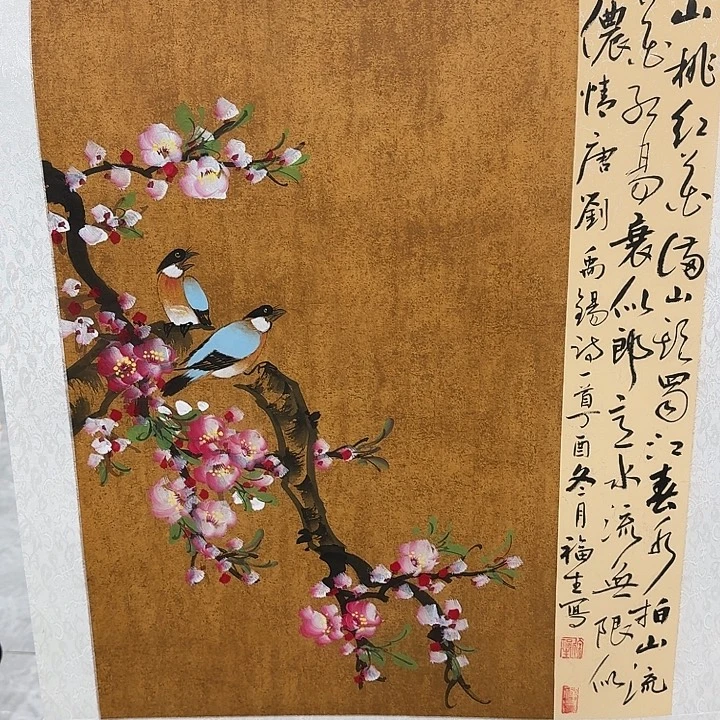 山桃红花满山头蜀江春水拍山流
花红易衰似郎意水流無限似
儂情唐劉禹錫詩一首丁酉冬月福生寫